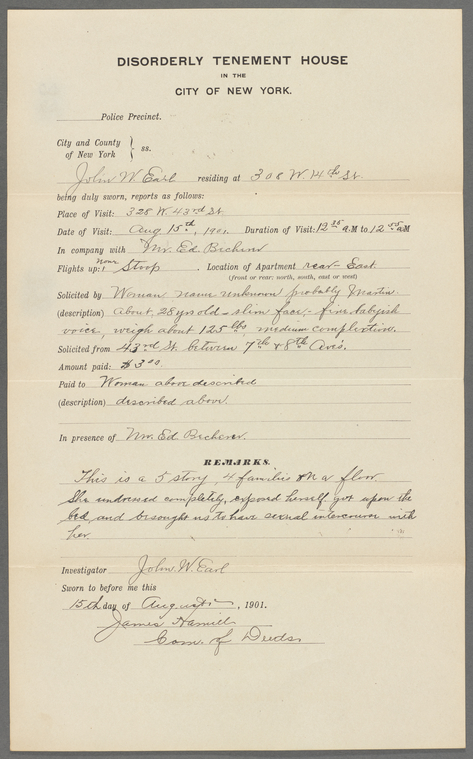 DISORDERLY TENEMENT HOUSE
IN THE
CITY OF NEW YORK.
Police Precinct.
City and County
of New York } ss.
John W. Earl residing at 308 W. 14th St.
being duly sworn, reports as follows:
Place of Visit: 328 W 43rd St
Date of Visit: Aug 15th, 1901. Duration of Visit: 12 35 A.M to 12 55 AM
In company with Mr. Ed. Becherer
Flights up: none Stoop. Location of Apartment rear East.
(front or rear; north, south, east or west)
Solicited by Woman name unknown probably Martin
(description) About 28 yrs old - slim face - fine babyish
voice, weigh about 125 lbs, medium complextion.
Solicited from 43rd St. between 7th & 8th Aves.
Amount paid: $3.00
Paid to Woman above described
(description) described above.
In presence of Mr. Ed. Becherer.
REMARKS.
This is a 5 story, 4 families on a floor
She undressed completely, exposed herself got upon the
bed, and besought us to have sexual intercourse with
her
Investigator John. W. Earl
Sworn to before me this
15th day of August, 1901.
James Hamill
Com. of Deeds.